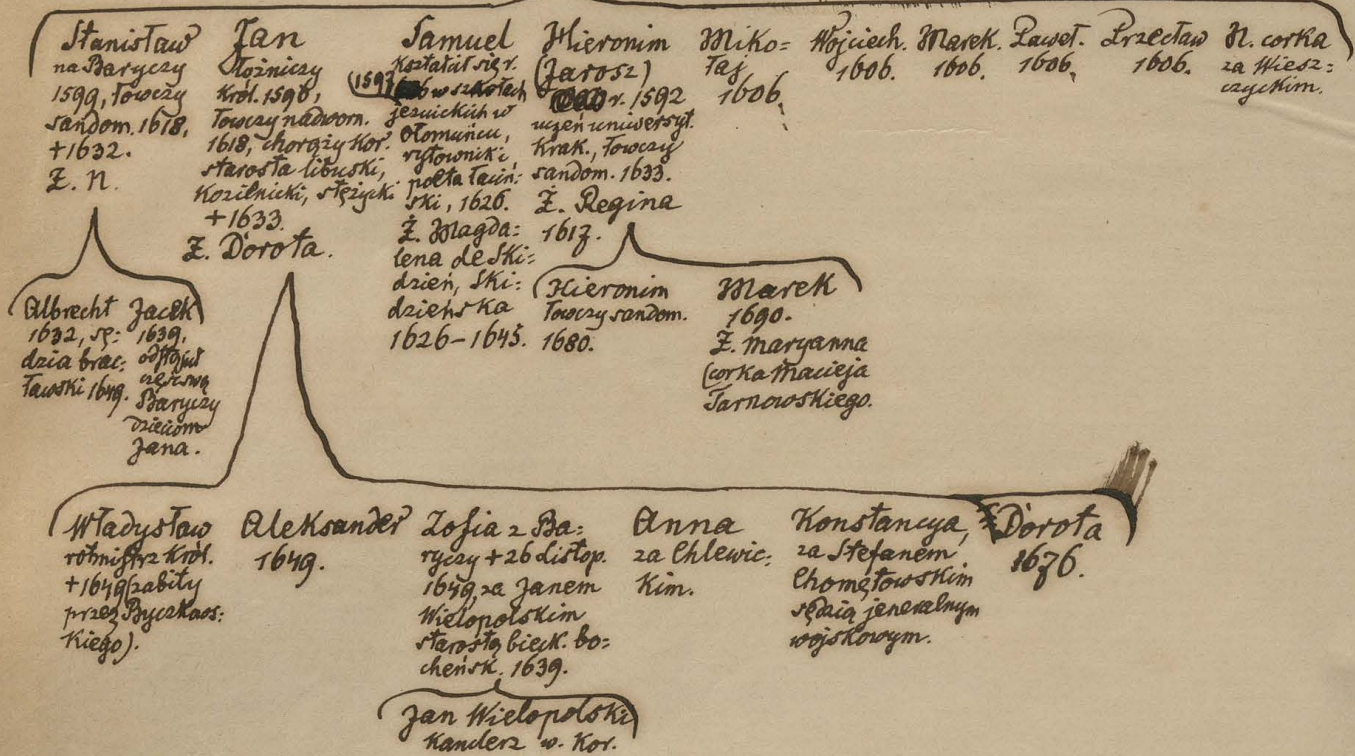 Stanisław
na Baryczy
1599, łowczy
sandom. 1618,
+1632.
Ż. N.
Jan
łożniczy
Król. 1596,
łowczy nadworn.
1618, chorąży Kor.
starosta libuski,
Kozilnicki, stężycki
+1633.
Ż. Dorota.
Samuel
Kształcił się r.
(1597) w szkołach
jezuickich w
Ołomuńcu,
rytownik i
poeta łaciń:
ski, 1626.
Ż. Magda:
lena de Ski:
dzień, Ski:
dzieńska
1626-1645.
Hieronim
(Jarosz)
r. 1592
uczeń uniwersyt.
Krak., łowczy
sandom. 1633.
Ż. Regina
1617.
Miko=
łaj
1606.
Wojciech.
1606.
Marek.
1606.
Paweł.
1606.
Przecław
1606.
N. corka
za Wiesz:
czyckim.
Albrecht
1632, sę:
dzia brac:
ławski 1649.
Jacek
1639,
odstąpił
część wsi
Baryczy
dzieciom
Jana.
Hieronim
łowczy sandom.
1680.
Marek
1690.
Ż. Maryanna
corka Macieja
Tarnowskiego.
Władysław
rotmistrz Król.
+1649 (zabity
przez Byczkows:
Kiego).
Aleksander
1649.
Zofia z Ba:
ryczy +26 Listop.
1649, za Janem
Wielopolskim
starostą bieck. bo:
cheńsk. 1639.
Anna
za Chlewic:
Kim.
Konstancya,
za Stefanem
Chomętowskim
sędzią jeneralnym
wojskowym.
Dorota
1676.
Jan Wielopolski
Kanclerz w. Kor.